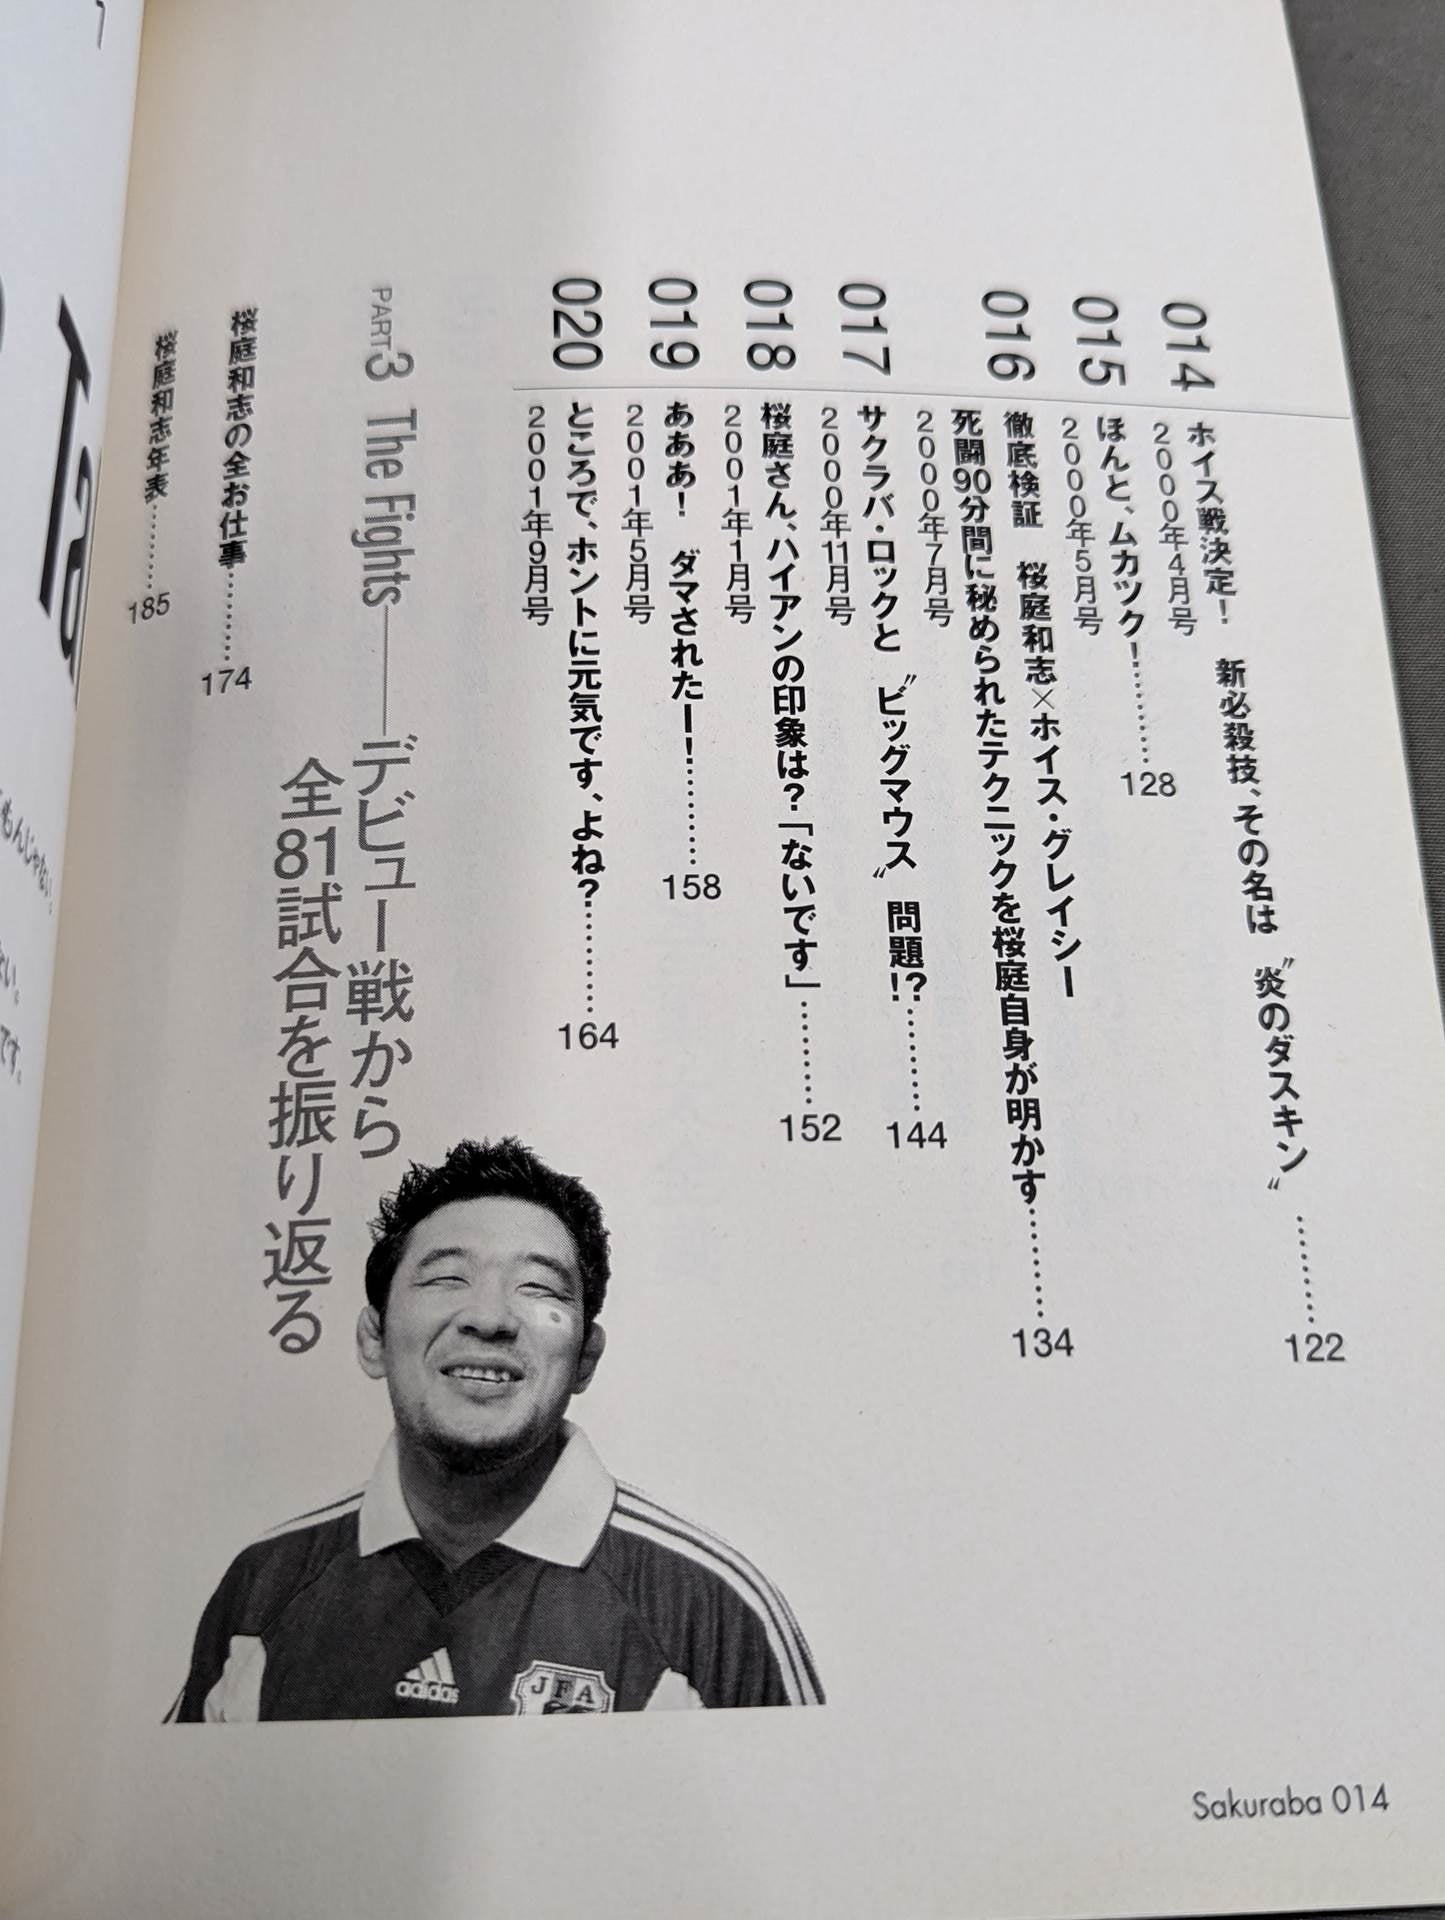 014
ホイス戦決定！　新必殺技、その名は〝炎のダスキン〟………122
2000年4月号
015
ほんと、ムカツク！………128
2000年5月号
016
徹底検証　桜庭和志×ホイス・グレイシー
死闘90分間に秘められたテクニックを桜庭自身が明かす………134
2000年7月号
017
サクラバ・ロックと〝ビッグマウス〟問題!?………144
2000年11月号
018
桜庭さん、ハイアンの印象は？「ないです」………152
2001年1月号
019
あああ！　ダマされたー！………158
2001年5月号
020
ところで、ホントに元気です、よね？………164
2001年9月号
PART3 The Fights――デビュー戦から
全81試合を振り返る
桜庭和志の全お仕事………174
桜庭和志年表………185
adidas
JFA
Sakuraba 014
もんじゃない。
い。
です。